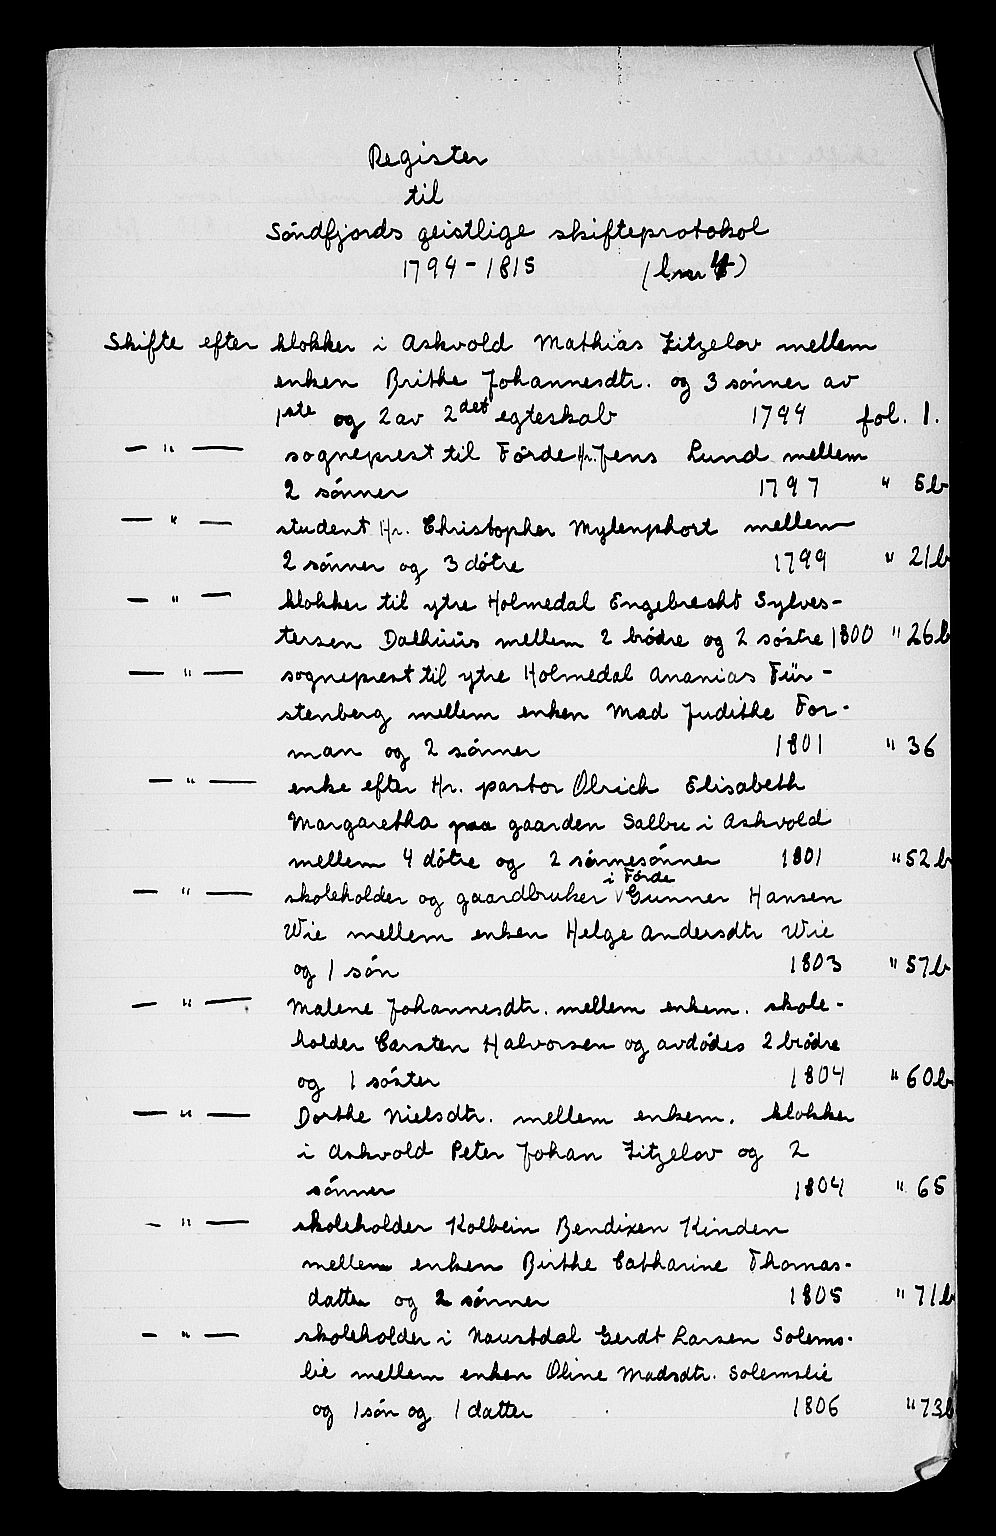 Register
til
Söndfjords geistlige skifteprotokol
1794-1815 (lnr 4)
Skifte efter klokker i Askvold Mathias Fitzelov mellem
enken Brithe Johannesdtr. og 3 sönner av
1ste og 2 av 2det egteskab 1794 fol. 1.
— " — sogneprest til Förde Hr. Jens Lund mellem
2 sönner 1797 " 5b
— " — student Hr. Christopher Mylenphort mellem
2 sönner og 3 dötre 1799 " 21b
— " — klokker til ytre Holmedal Engebrecht Sylves-
tersen Dalhuus mellem 2 brödre og 2 söstre 1800 " 26b
— " — sogneprest til ytre Holmedal Ananias Für-
stenberg mellem enken Mad Judithe For-
man og 2 sönner 1801 " 36
— " — enke efter Hr. pastor Olrich Elisabeth
Margaretha paa gaarden Salbu i Askvold
mellem 4 dötre og 2 sönnesönner 1801 " 52b
i Förde
— " — skoleholder og gaardbruker Gunner Hansen
Wie mellem enken Helge Andersdtr Wie
og 1 sön 1803 " 57b
— " — Malene Johannesdtr. mellem enkem. skole-
holder Carsten Halvorsen og avdödes 2 brödre
og 1 söster 1804 " 60b
— " — Dorthe Nielsdtr. mellem enkem. klokker
i Askvold Peter Johan Fitzelov og 2
sönner 1804 " 65
— " — skoleholder Kolbein Bendixen Kinden
mellem enken Birthe Catharine Thomas-
datter og 2 sönner 1805 " 71b
— " — skoleholder i Naustdal Gerdt Larsen Solems-
lie mellem enken Oline Madsdtr. Solemslie
og 1 sön og 1 datter 1806 " 73b